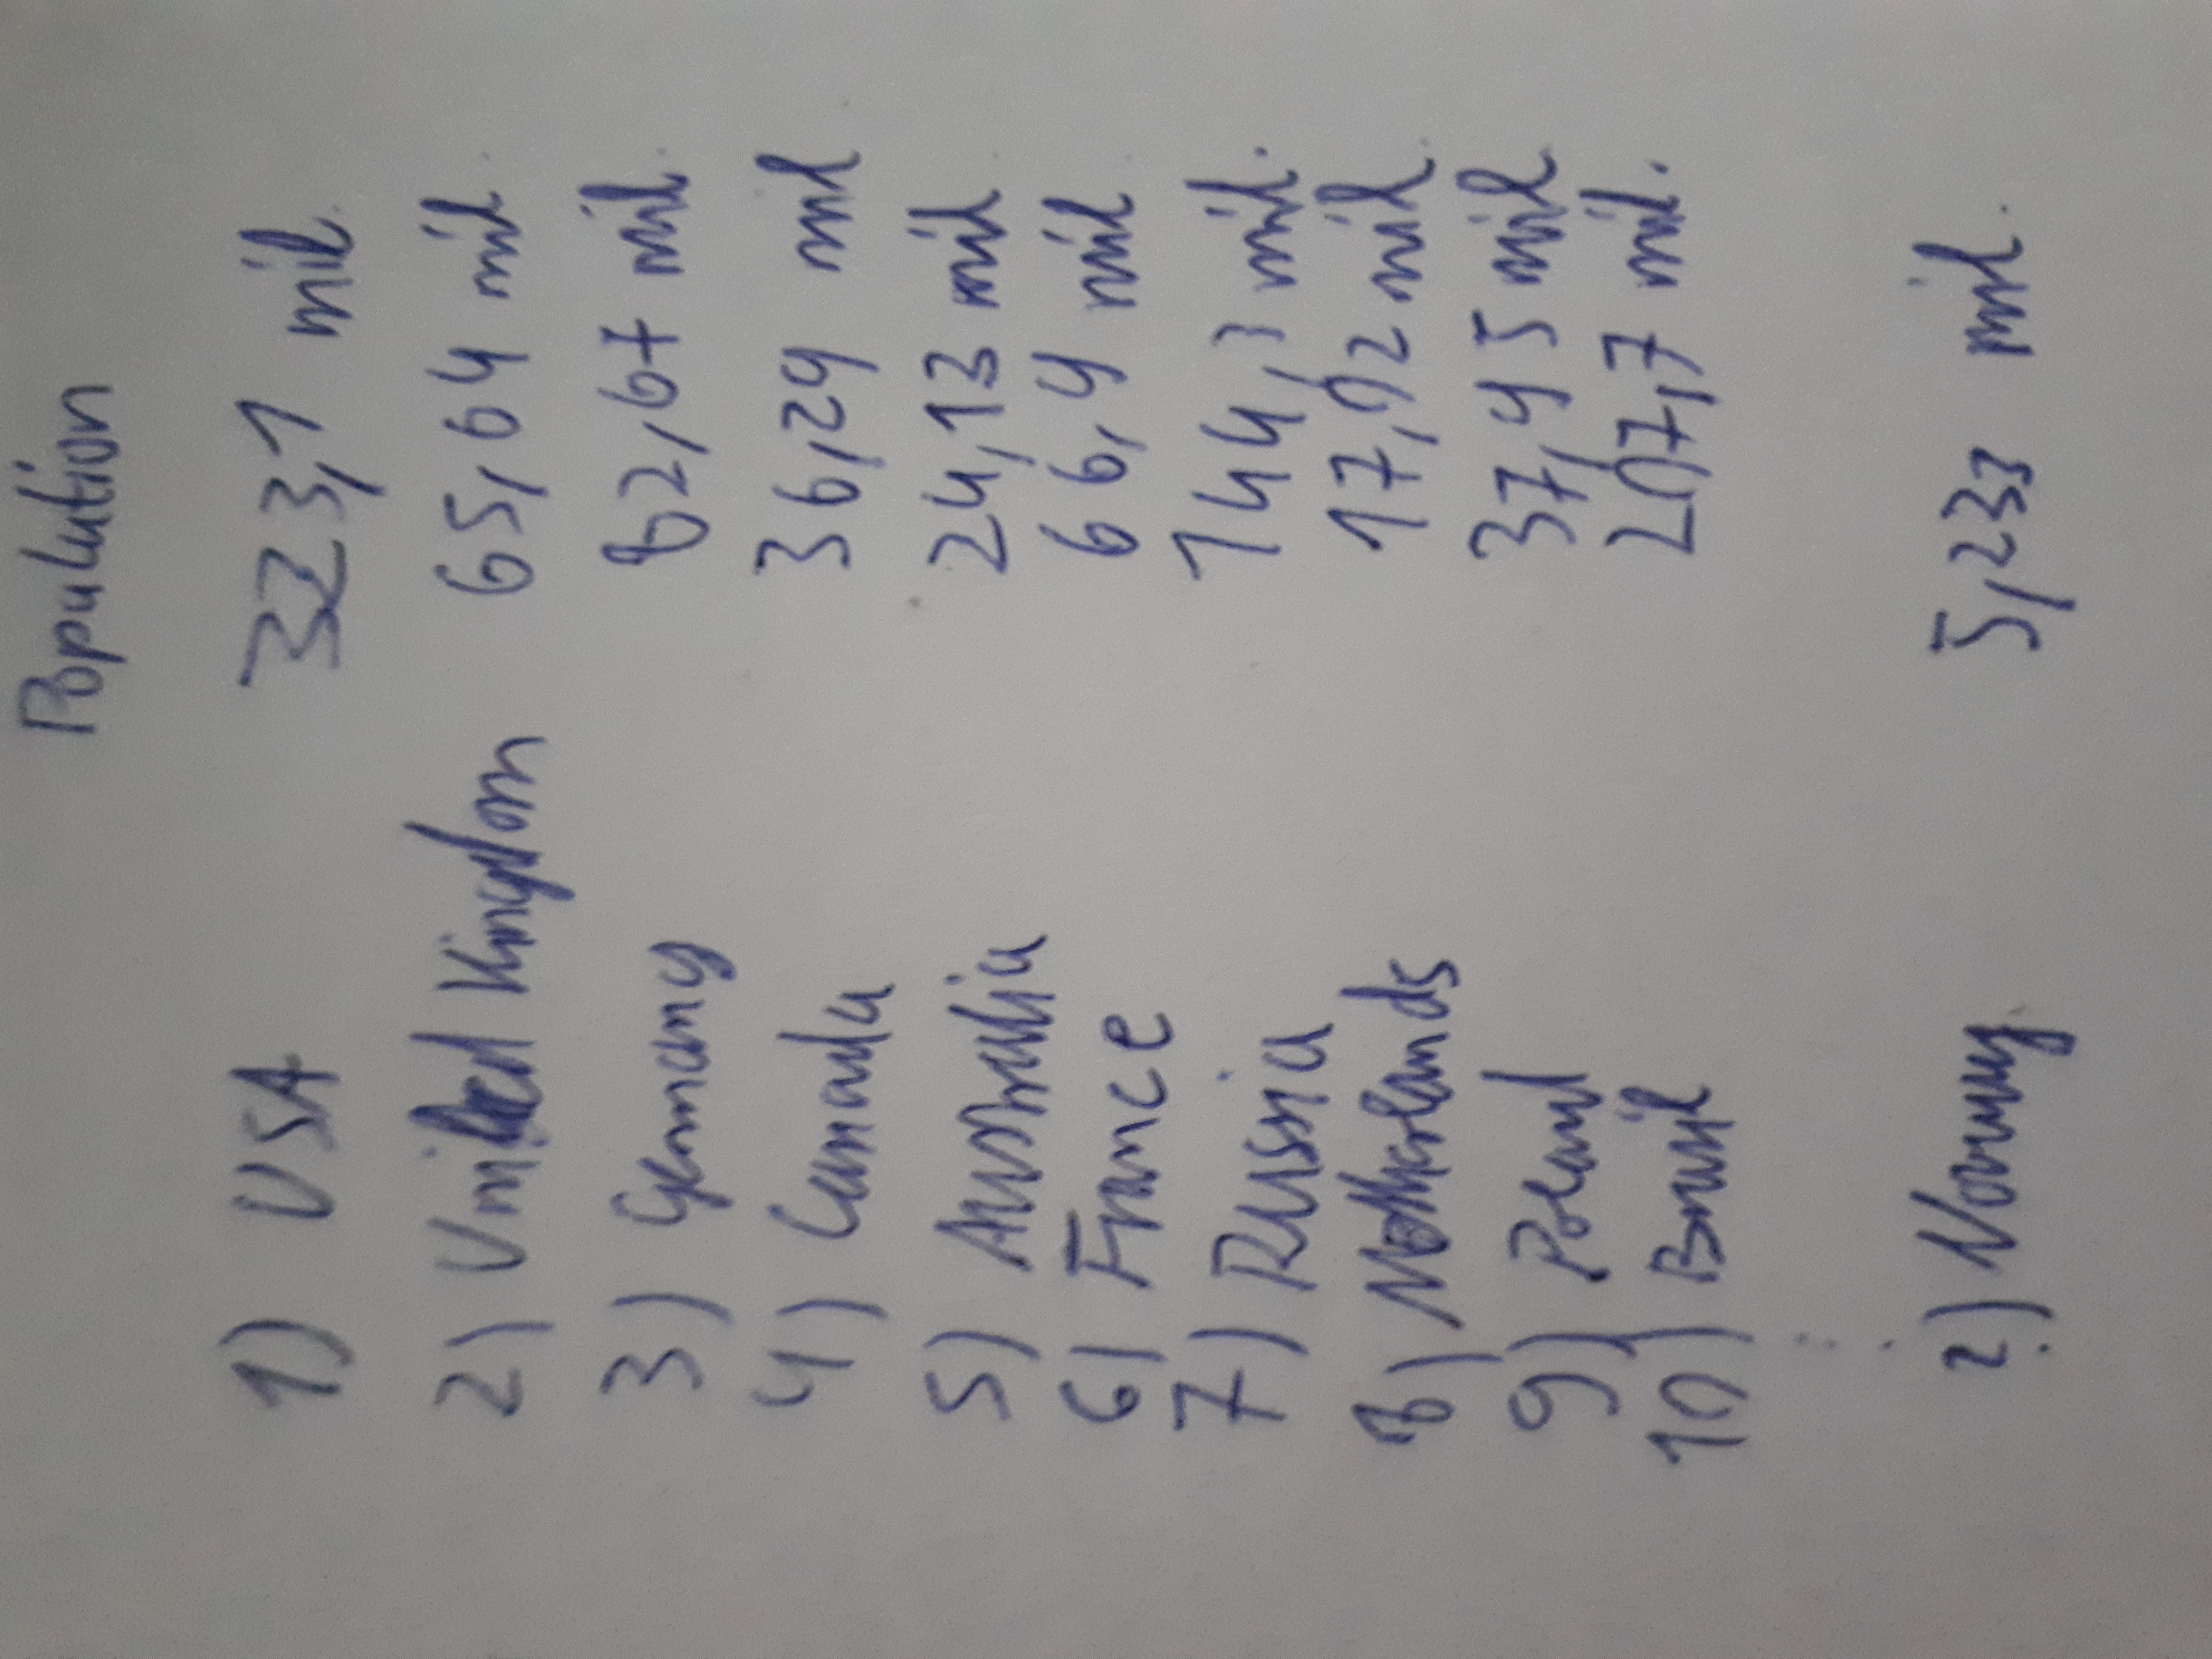 Population
1) USA 323,1 mil.
2) United Kingdom 65,64 mil.
3) Germany 82,67 mil.
4) Canada 36,29 mil
5) Australia 24,13 mil.
6) France 66,9 mil.
7) Russia 144,3 mil.
8) Netherlands 17,02 mil.
9) Poland 37,95 mil.
10) Brazil 207,7 mil.
?) Norway 5,233 mil.